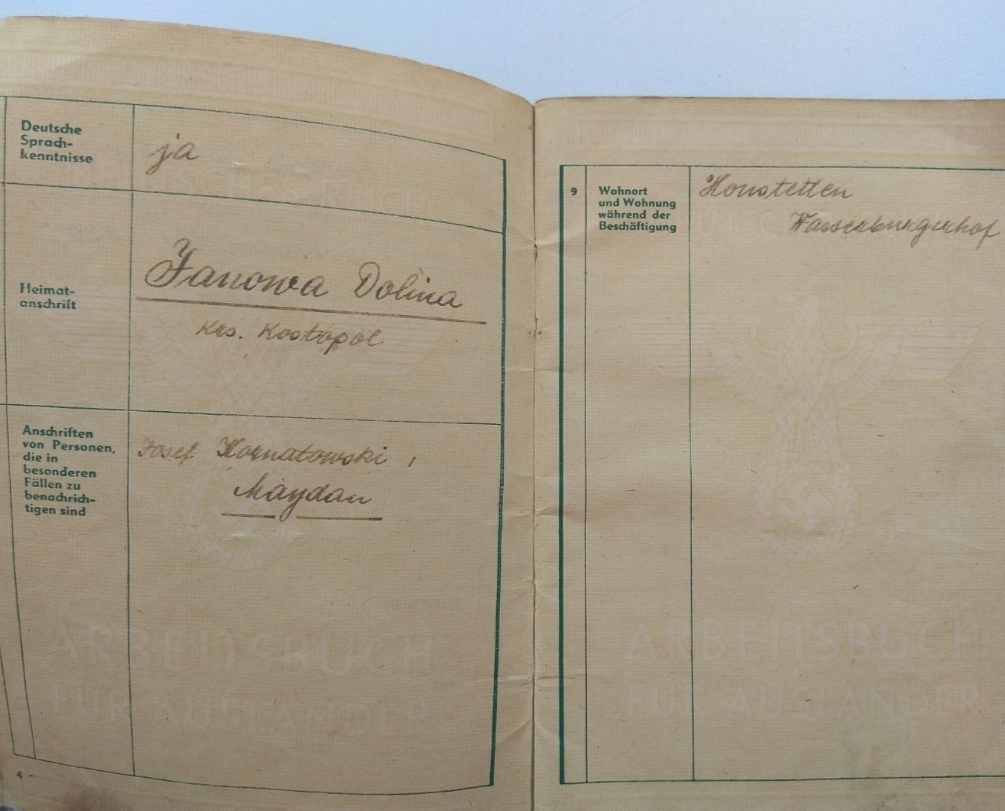 Deutsche
Sprach-
kenntnisse
ja
Heimat-
anschrift
Janowa Dolina
Krs. Kostopol
Anschriften
von Personen,
die in
besonderen
Fällen zu
benachrich-
tigen sind
Josef Kornatowski,
Maydan
ARBEITSBUCH
FÜR AUSLÄNDER
4
9
Wohnort
und Wohnung
während der
Beschäftigung
Honstetten
Wasserburgerhof
ARBEITSBUCH
FÜR AUSLÄNDER